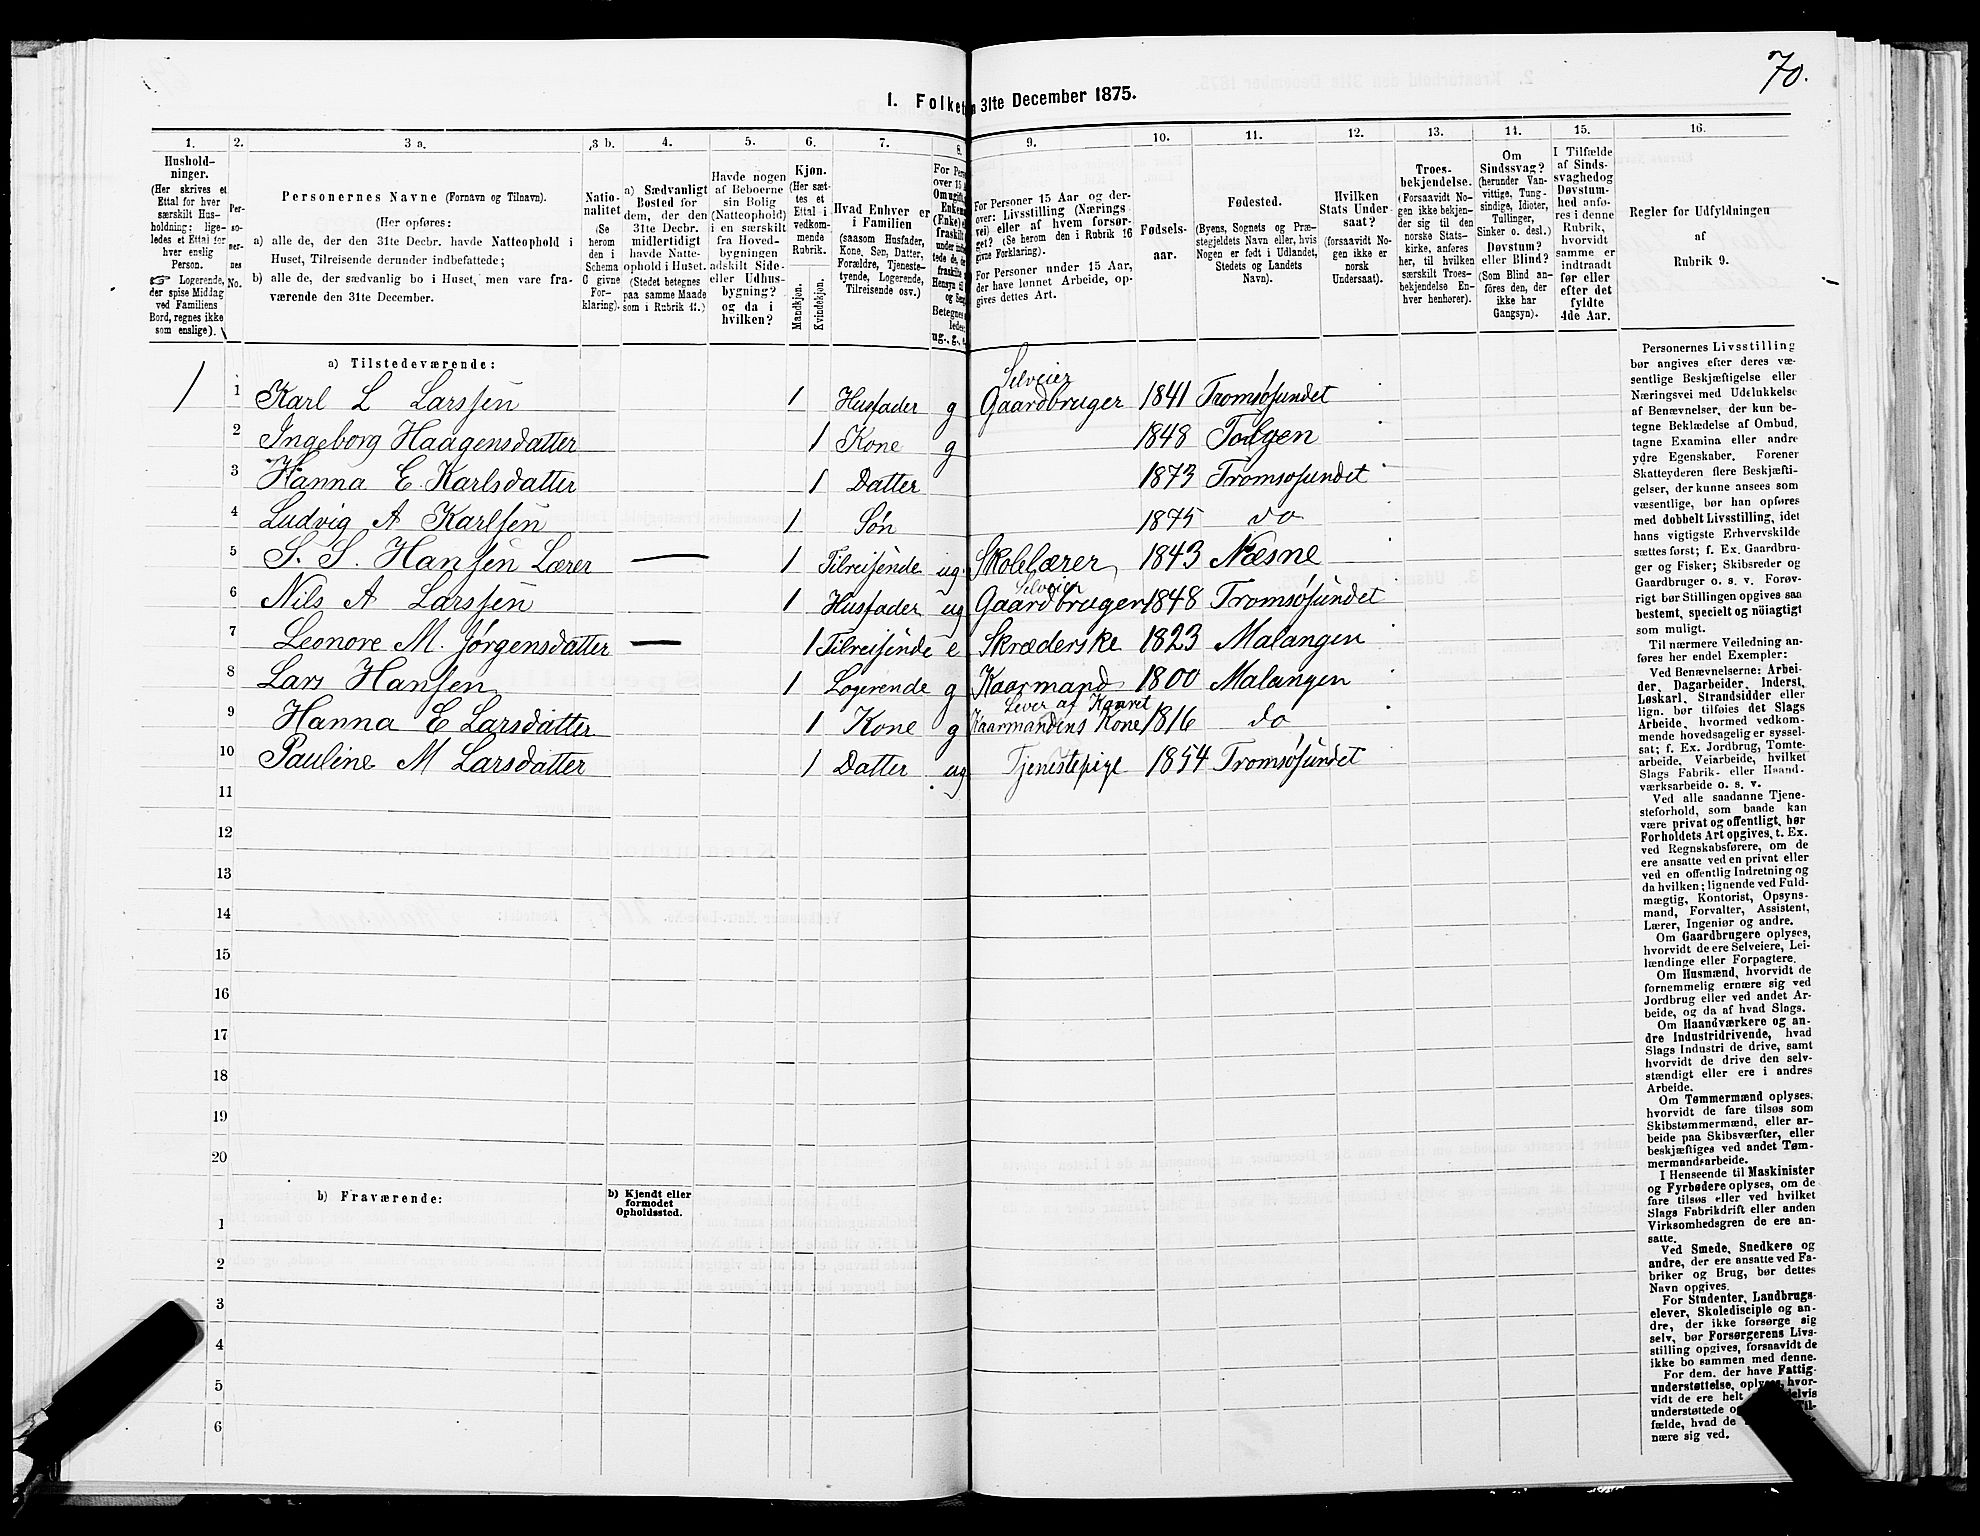 70.
1. Folket
n 31te December 1875.
1.
Hushold-
ninger.
(Her skrives et
Ettal for hver
særskilt Hus-
holdning; lige-
ledes et Ettal for
hver enslig
Person.
☞ Logerende,
der spise Middag
ved Familiens
Bord, regnes ikke
som enslige).
2.
Per-
so-
ner-
nes
No.
3 a.
Personernes Navne (Fornavn og Tilnavn).
(Her opføres:
a) alle de, der den 31te Decbr. havde Natteophold i
Huset, Tilreisende derunder indbefattede;
b) alle de, der sædvanlig bo i Huset, men vare fra-
værende den 31te December.
3 b.
Natio-
nalitet
(Se
herom
den i
Schema
G givne
For-
klaring).
4.
a) Sædvanligt
Bosted for
dem, der den
31te Decbr.
midlertidigt
havde Natte-
ophold i Huset.
(Stedet betegnes
paa samme Maade
som i Rubrik 11.)
5.
Havde nogen
af Beboerne
sin Bolig
(Natteophold)
i en særskilt
fra Hoved-
bygningen
adskilt Side-
eller Udhus-
bygning?
og da i
hvilken?
6.
Kjøn.
(Her sæt-
tes et
Ettal i
vedkom-
mende
Rubrik.
Mandkjøn.
Kvindekjøn.
7.
Hvad Enhver er
i Familien
(saasom Husfader,
Kone, Søn, Datter,
Forældre, Tjeneste-
tyende, Logerende,
Tilreisende osv.)
8.
For Pers
over 15
Om ugift,
Enkem
(Enke) e
fraskilt
9.
For Personer 15 Aar og der-
over: Livsstilling (Nærings
vei) eller af hvem forsør-
get? (Se herom den i Rubrik 16
givne Forklaring).
For Personer under 15 Aar,
der have lønnet Arbeide, op-
gives dettes Art.
10.
Fødsels-
aar.
11.
Fødested.
(Byens, Sognets og Præ-
stegjeldets Navn eller, hvis
Nogen er født i Udlandet,
Stedets og Landets
Navn).
12.
Hvilken
Stats Under
saat?
(forsaavidt No-
gen ikke er
norsk
Undersaat).
13.
Troes-
bekjendelse.
(Forsaavidt No-
gen ikke bekjen-
der sig til den
norske Stats-
kirke, anføres
her, til hvilken
særskilt Troes-
bekjendelse En-
hver henhører).
14.
Om
Sindssvag?
(herunder Van-
vittige, Tung-
sindige, Idioter,
Tullinger,
Sinker o. desl.)
Døvstum?
eller Blind?
(Som Blind an-
føres den, der
ikke har
Gangsyn).
15.
I Tilfælde
af Sinds-
svaghedog
Døvstum-
hed anfø-
res i denne
Rubrik,
hvorvidt
samme er
indtraadt
før eller
efter det
fyldte
4de Aar.
16.
Regler for Udfyldningen
af
Rubrik 9.
a) Tilstedeværende:
1 1 Karl L Larssen 1 Husfader g Selveier Gaardbruger 1841 Tromsøsundet
2 Ingeborg Haagensdatter 1 Kone g 1848 Tolgen
3 Hanna E. Karlsdatter 1 Datter 1873 Tromsøsundet
4 Ludvig A Karlsen 1 Søn 1875 do
5 S. S. Hansen Lærer — 1 Tilreisende ug. Skolelærer 1843 Næsne
6 Nils A Larssen 1 Husfader ug Selveier Gaardbruger 1848 Tromsøsundet
7 Leonore M. Jørgensdatter — 1 Tilreisende e Skræderske 1823 Malangen
8 Lars Hansen 1 Logerende g Kaarmand 1800 Malangen
9 Hanna E Larsdatter 1 Kone g Lever af Kauret Kaarmandens Kone 1816 do
10 Pauline M Larsdatter 1 Datter ug Tjenestepige 1854 Tromsøsundet
11
12
13
14
15
16
17
18
19
20
b) Fraværende:
b) Kjendt eller
formodet
Opholdssted.
1
2
3
4
5
6
Personernes Livsstilling
bør angives efter deres væ-
sentlige Beskjæftigelse eller
Næringsvei med Udelukkelse
af Benævnelser, der kun be-
tegne Beklædelse af Ombud,
tagne Examina eller andre
ydre Egenskaber. Forener
Skatteyderen flere Beskjæfti-
gelser, der kunne ansees som
væsentlige, bør han opføres
med dobbelt Livsstilling, idet
hans vigtigste Erhvervskilde
sættes først; f. Ex. Gaardbru-
ger og Fisker; Skibsreder og
Gaardbruger o. s. v. Forøv-
rigt bør Stillingen opgives saa
bestemt, specielt og nøiagtigt
som muligt.
Til nærmere Veiledning an-
føres her endel Exempler:
Ved Benævnelserne: Arbei-
der, Dagarbeider, Inderst,
Løskarl, Strandsidder eller
lign. bør tilføies det Slags
Arbeide, hvormed vedkom-
mende hovedsagelig er syssel-
sat; f. Ex. Jordbrug, Tomte-
arbeide, Veiarbeide, hvilket
Slags Fabrik- eller Haand-
værksarbeide o. s. v.
Ved alle saadanne Tjene-
steforhold, som baade kan
være privat og offentligt, bør
Forholdets Art opgives, t. Ex.
ved Regnskabsførere, om de
ere ansatte ved en privat eller
ved en offentlig Indretning og
da hvilken; lignende ved Fuld-
mægtig, Kontorist, Opsyns-
mand, Forvalter, Assistent,
Lærer, Ingeniør og andre.
Om Gaardbrugere oplyses,
hvorvidt de ere Selveiere, Lei-
lændinge eller Forpagtere.
Om Husmænd, hvorvidt de
fornemmelig ernære sig ved
Jordbrug eller ved andet Ar-
beide, og da af hvad Slags.
Om Haandværkere og an-
dre Industridrivende, hvad
Slags Industri de drive, samt
hvorvidt de drive den selv-
stændigt eller ere i andres
Arbeide.
Om Tømmermænd oplyses,
hvorvidt de fare tilsøs som
Skibstømmermænd, eller ar-
beide paa Skibsværfter, eller
beskjæftiges ved andet Tøm-
mermandsarbeide.
I Henseende til Maskinister
og Fyrbødere oplyses, om de
fare tilsøs eller ved hvilket
Slags Fabrikdrift eller anden
Virksomhedsgren de ere an-
satte.
Ved Smede, Snedkere og
andre, der ere ansatte ved Fa-
briker og Brug, bør dettes
Navn opgives.
For Studenter, Landbrugs-
elever, Skoledisciple og an-
dre, der ikke forsørge sig
selv, bør Forsørgerens Livs-
stilling opgives, forsaavidt de
ikke bo sammen med denne.
For dem, der have Fattig-
understøttelse, oplyses, hvor-
vidt de ere helt delvis
understøttede og Til-
fælde, hvad de
nære sig ved.